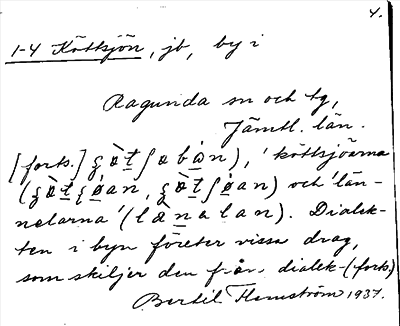 4.
1-4 Köttsjön, jb, by i
Ragunda sn och tg,
Jämtl. län.
[forts.] ʂæ̀t̲ʃabán), 'köttsjöarna
(ʂæ̀t̲ʂǿan, ʂæ̀t̲ʃǿan) och 'län-
nelarna' (læ̀n̲alan). Dialek-
ten i byn företer vissa drag,
som skiljer den från dialek-(forts.)
Bertil Flemström 1937.